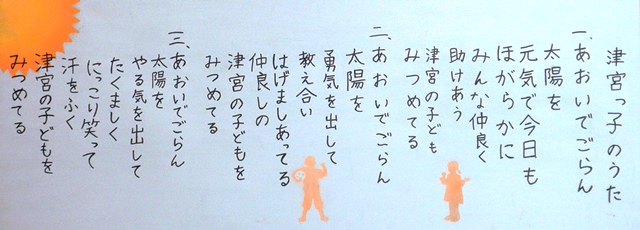 津宮っ子のうた
一、あおいでごらん
太陽を
元気で今日も
ほがらかに
みんな仲良く
助けあう
津宮の子ども
みつめてる
二、あおいでごらん
太陽を
勇気を出して
教え合い
はげましあってる
仲良しの
津宮の子どもを
みつめてる
三、あおいでごらん
太陽を
やる気を出して
たくましく
にっこり笑って
汗をふく
津宮の子どもを
みつめてる